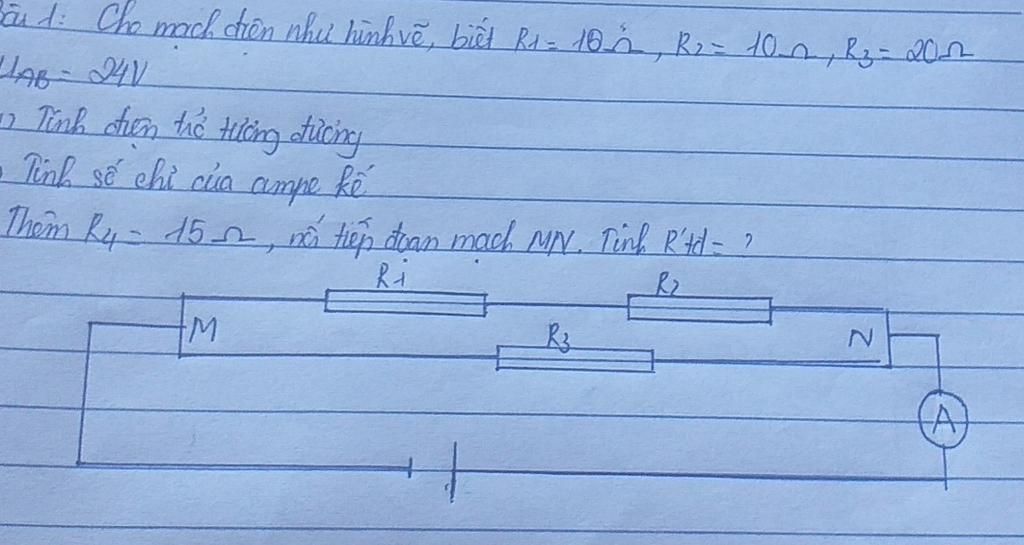 Bài 1: Cho mạch điện như hình vẽ, biết R1 = 10Ω, R2 = 10Ω, R3 = 20Ω
UAB = 24V
Tính điện trở tương đương
Tính số chỉ của ampe kế
Thêm R4 = 15Ω, nối tiếp đoạn mạch MN. Tính R'tđ = ?
R1 R2
M R3 N
A